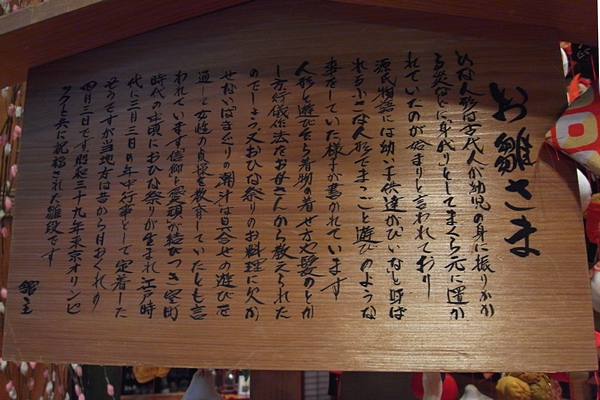 お雛さま
ひな人形は古代人が幼児の身に振りかか
る災などに身代りとしてまくら元に置か
れていたのが始まりと言われており
源氏物語には幼い子供達がひいなと呼ば
れる小さな人形でままごと遊びのような
事をしていた様子が書かれています
人形と遊びながら着物の着せ方や髪のとか
し方行儀作法をお母さんから教えられた
のでしょう又おひな祭りのお料理に欠か
せないはまぐりの潮汁は貝合せの遊びを
通して女性の貞操を教育していたとも言
われています信仰と愛頑が結びつき室町
時代の末頃におひな祭りが生まれ江戸時
代に三月三日の年中行事として定着した
そうですが当地方は昔から月おくれの
四月三日です昭和三十九年東京オリンピ
ック之兵に祝福された雛段です
館主